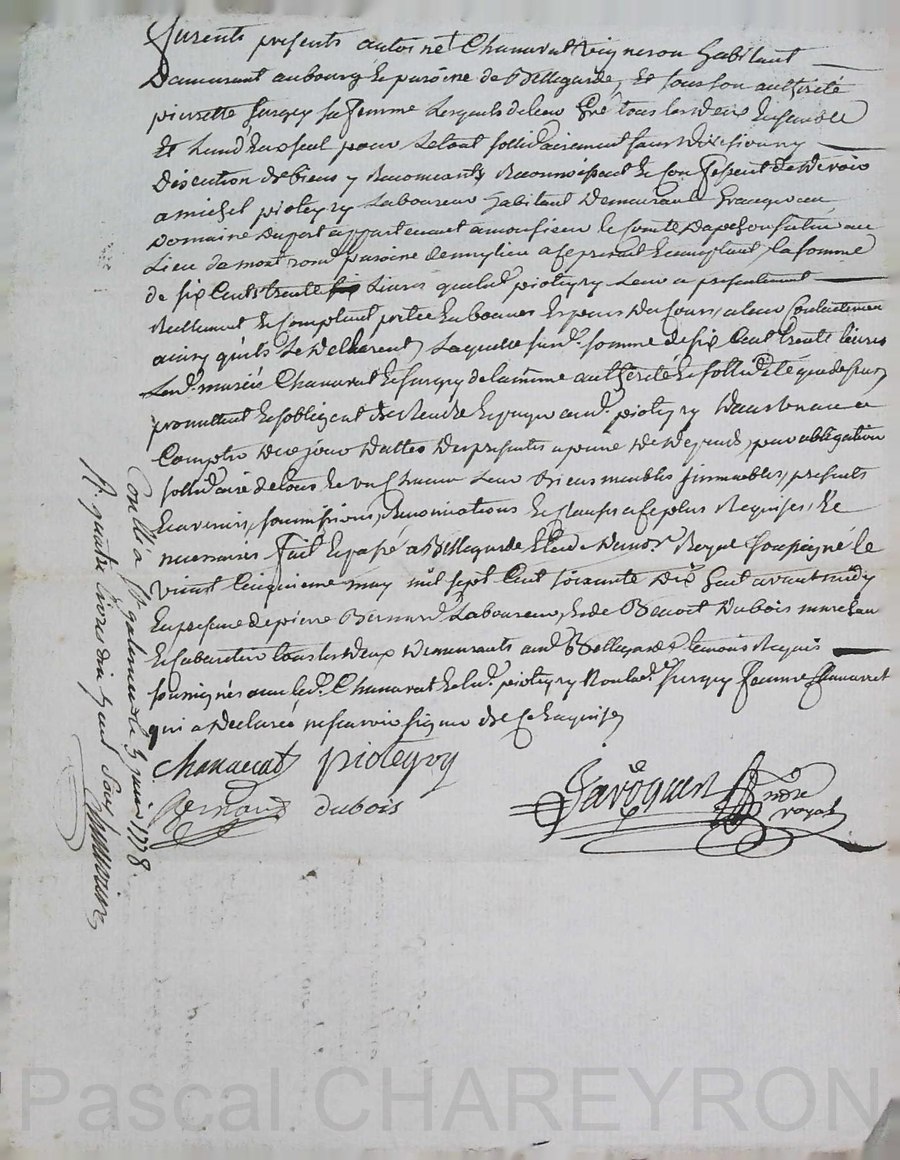 furent presents antoine Chanavat vigneron habitant
Demeurant au bourg et paroisse de Bellegarde, Et sous son authorité
pierrette Surgey sa femme Lesquels de leur Gré tous les deux Ensemble
Et L'un d'Eux seul pour Le tout sollidairement sans Division ny
Discution de biens y Renonceants Reconnoissent et Confessent de Devoir
a michel pioteyry Laboureur habitant Demeurant Grangeur au
Domaine Duport appartenant a monsieur le Comte Dapchon situé au
Lieu de montrond paroisse de meylieu a ce present Et acceptant, la somme
de six Cents trente Livres que led. pioteyry Leur a presentement
Reellement Et Comptant pretée En bonnes Especes Du Cours, a leur Contentement
ainsy qu'ils Le Declarent, Laquelle susd. somme de six Cent trente Livres
Lesd. mariés Chanavat Et Surgey de la même authorité Et sollidité que dessus
promettent Et s'obligent De Rendre Et payer aud. pioteyry Dans
Compter De ce jour Datte Des presentes a peine De Depends, par obligation
sollidaire de tous Et Un Chacun Leur Biens meubles immeubles, presents
Et avenir, soumissions, Renonciations Et Clauses a ce plus Requises, Et
necessaires. fait Et passé a Bellegarde Etude De no.re Royal soussigné le
vingt Cinquieme may mil sept Cent soixante Dix huit avant midy
En presence de pierre Bernard Laboureur, Et de Benoit Dubois marchand
Et Cabaretier tous les deux Demeurants aud. Bellegarde temoins Requis
soussignés avec led. Chanavat Et led. pioteyry Non lad. Surgey femme Chanavat
qui a Declaré ne scavoir signer De Ce Enquise
Chanavat pioteyry
Bernard dubois
Javogues no.re royal
Con.llé a S.t galmier le 5 juin 1778.
R. quatre Livres dix huit sous
Pascal CHAREYRON